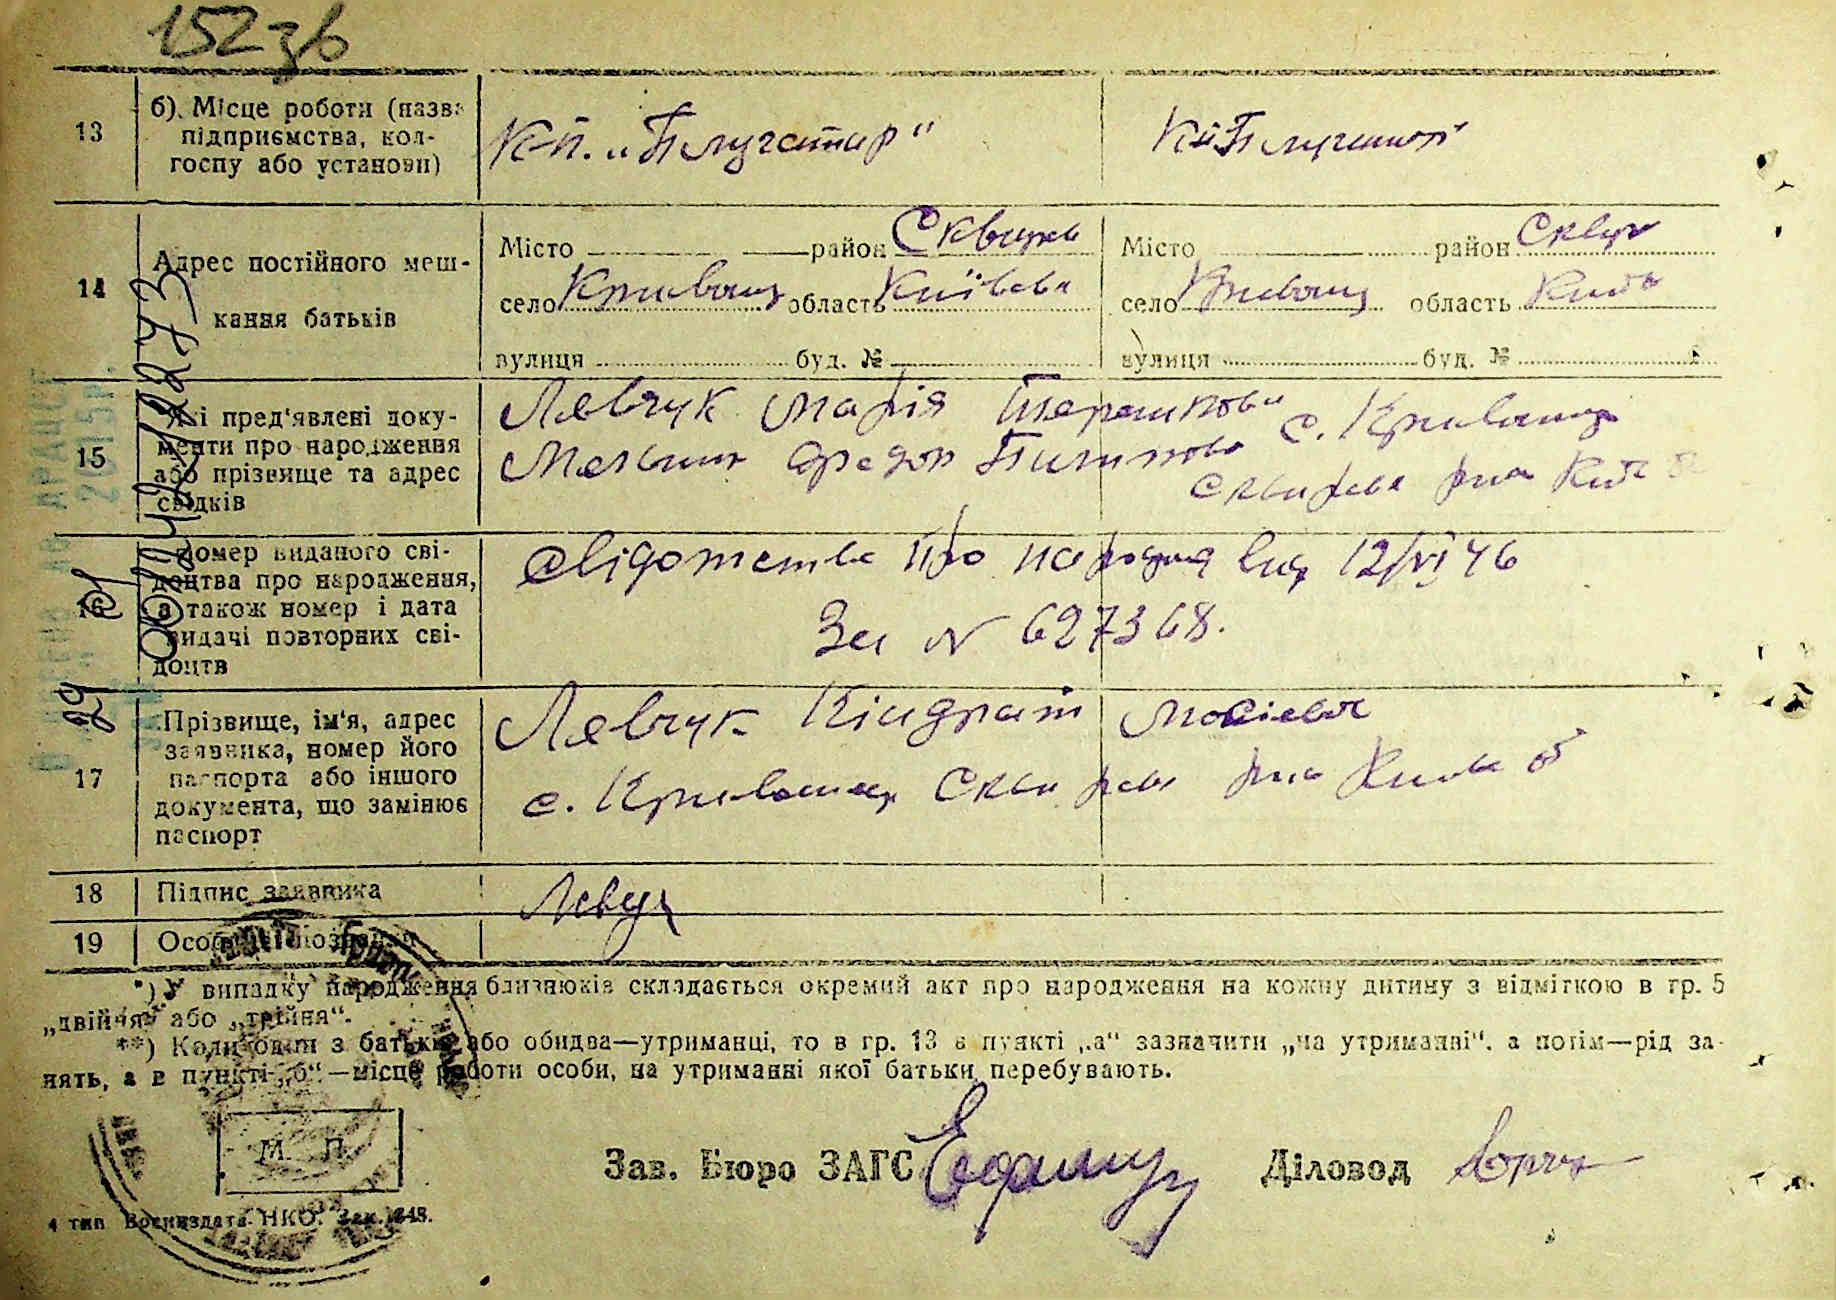 152 зв
13
б). Місце роботи (назва
підприємства, кол-
госпу або установи)
К-п. „Плугатар"
Кп Плугатар
14
Адрес постійного меш-
кання батьків
Місто район Сквирськ
село Кривошиї область Київськ
вулиця буд. №
Місто район Сквир
село Кривошиї область Київ
вулиця буд. №
15
Які пред'явлені доку-
менти про народження
або прізвище та адрес
свідків
Левчук Марія
с. Кривошиї
Сквирськ р-на Київ
16
Номер виданого сві-
доцтва про народження,
а також номер і дата
видачі повторних сві-
доцтв
Свідотства про народж від 12/VI 46
За № 627368.
17
Прізвище, ім'я, адрес
заявника, номер його
паспорта або іншого
документа, що замінює
паспорт
Левчук Кіндрат Мосієвич
с. Кривошиї Сквирськ р-на Київ об
18
Підпис заявника
Левчук
19
*) У випадку народження близнюків складається окремий акт про народження на кожну дитину з відміткою в гр. 5
„двійня" або „трійня".
**) Коли один з батьків або обидва—утриманці, то в гр. 13 в пункті „а" зазначити „на утриманні", а потім—рід за-
нять, а в пункті „б"—місце роботи особи, на утриманні якої батьки перебувають.
М. П.
Зав. Бюро ЗАГС
Діловод
4 тип Воениздата НКО. Зак. 348.